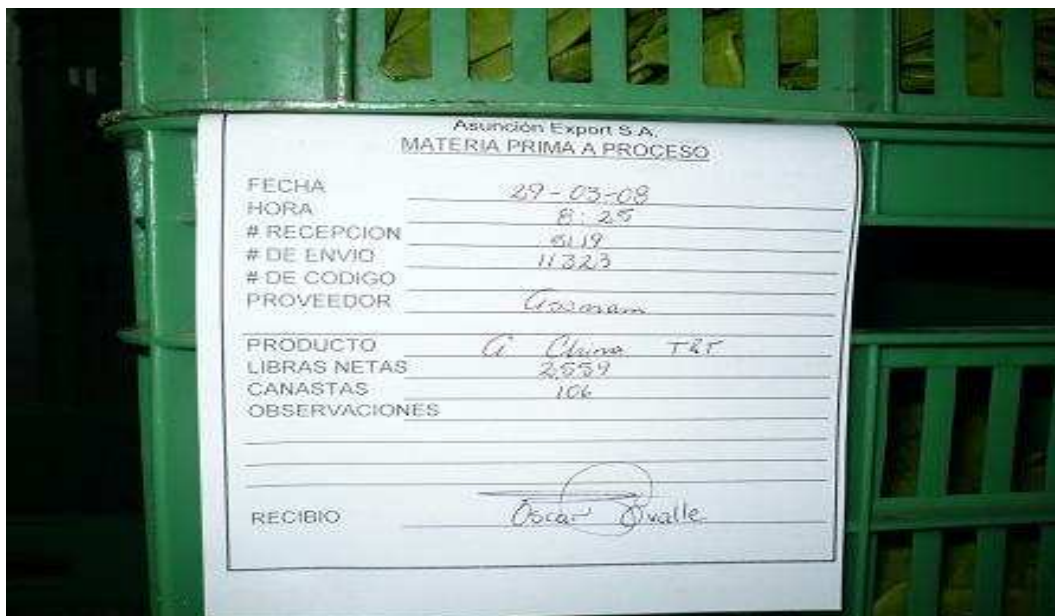 Asunción Export S.A.
MATERIA PRIMA A PROCESO
FECHA 29-03-08
HORA 8:25
# RECEPCION 5119
# DE ENVIO 11323
# DE CODIGO
PROVEEDOR
PRODUCTO a China T&T
LIBRAS NETAS 2559
CANASTAS 106
OBSERVACIONES
RECIBIO Oscar Ovalle